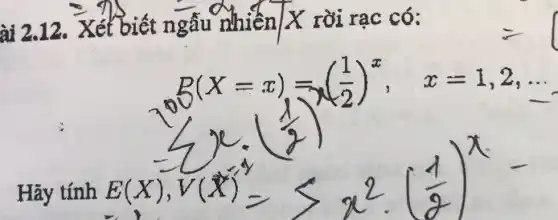 ài 2.12. Xét biết ngẫu nhiên X rời rạc có:
P(X = x) = (1/2)^x, x = 1, 2, ...
Σ x. (1/2)
Hãy tính E(X), V(X) = Σ x². (1/2)^x -